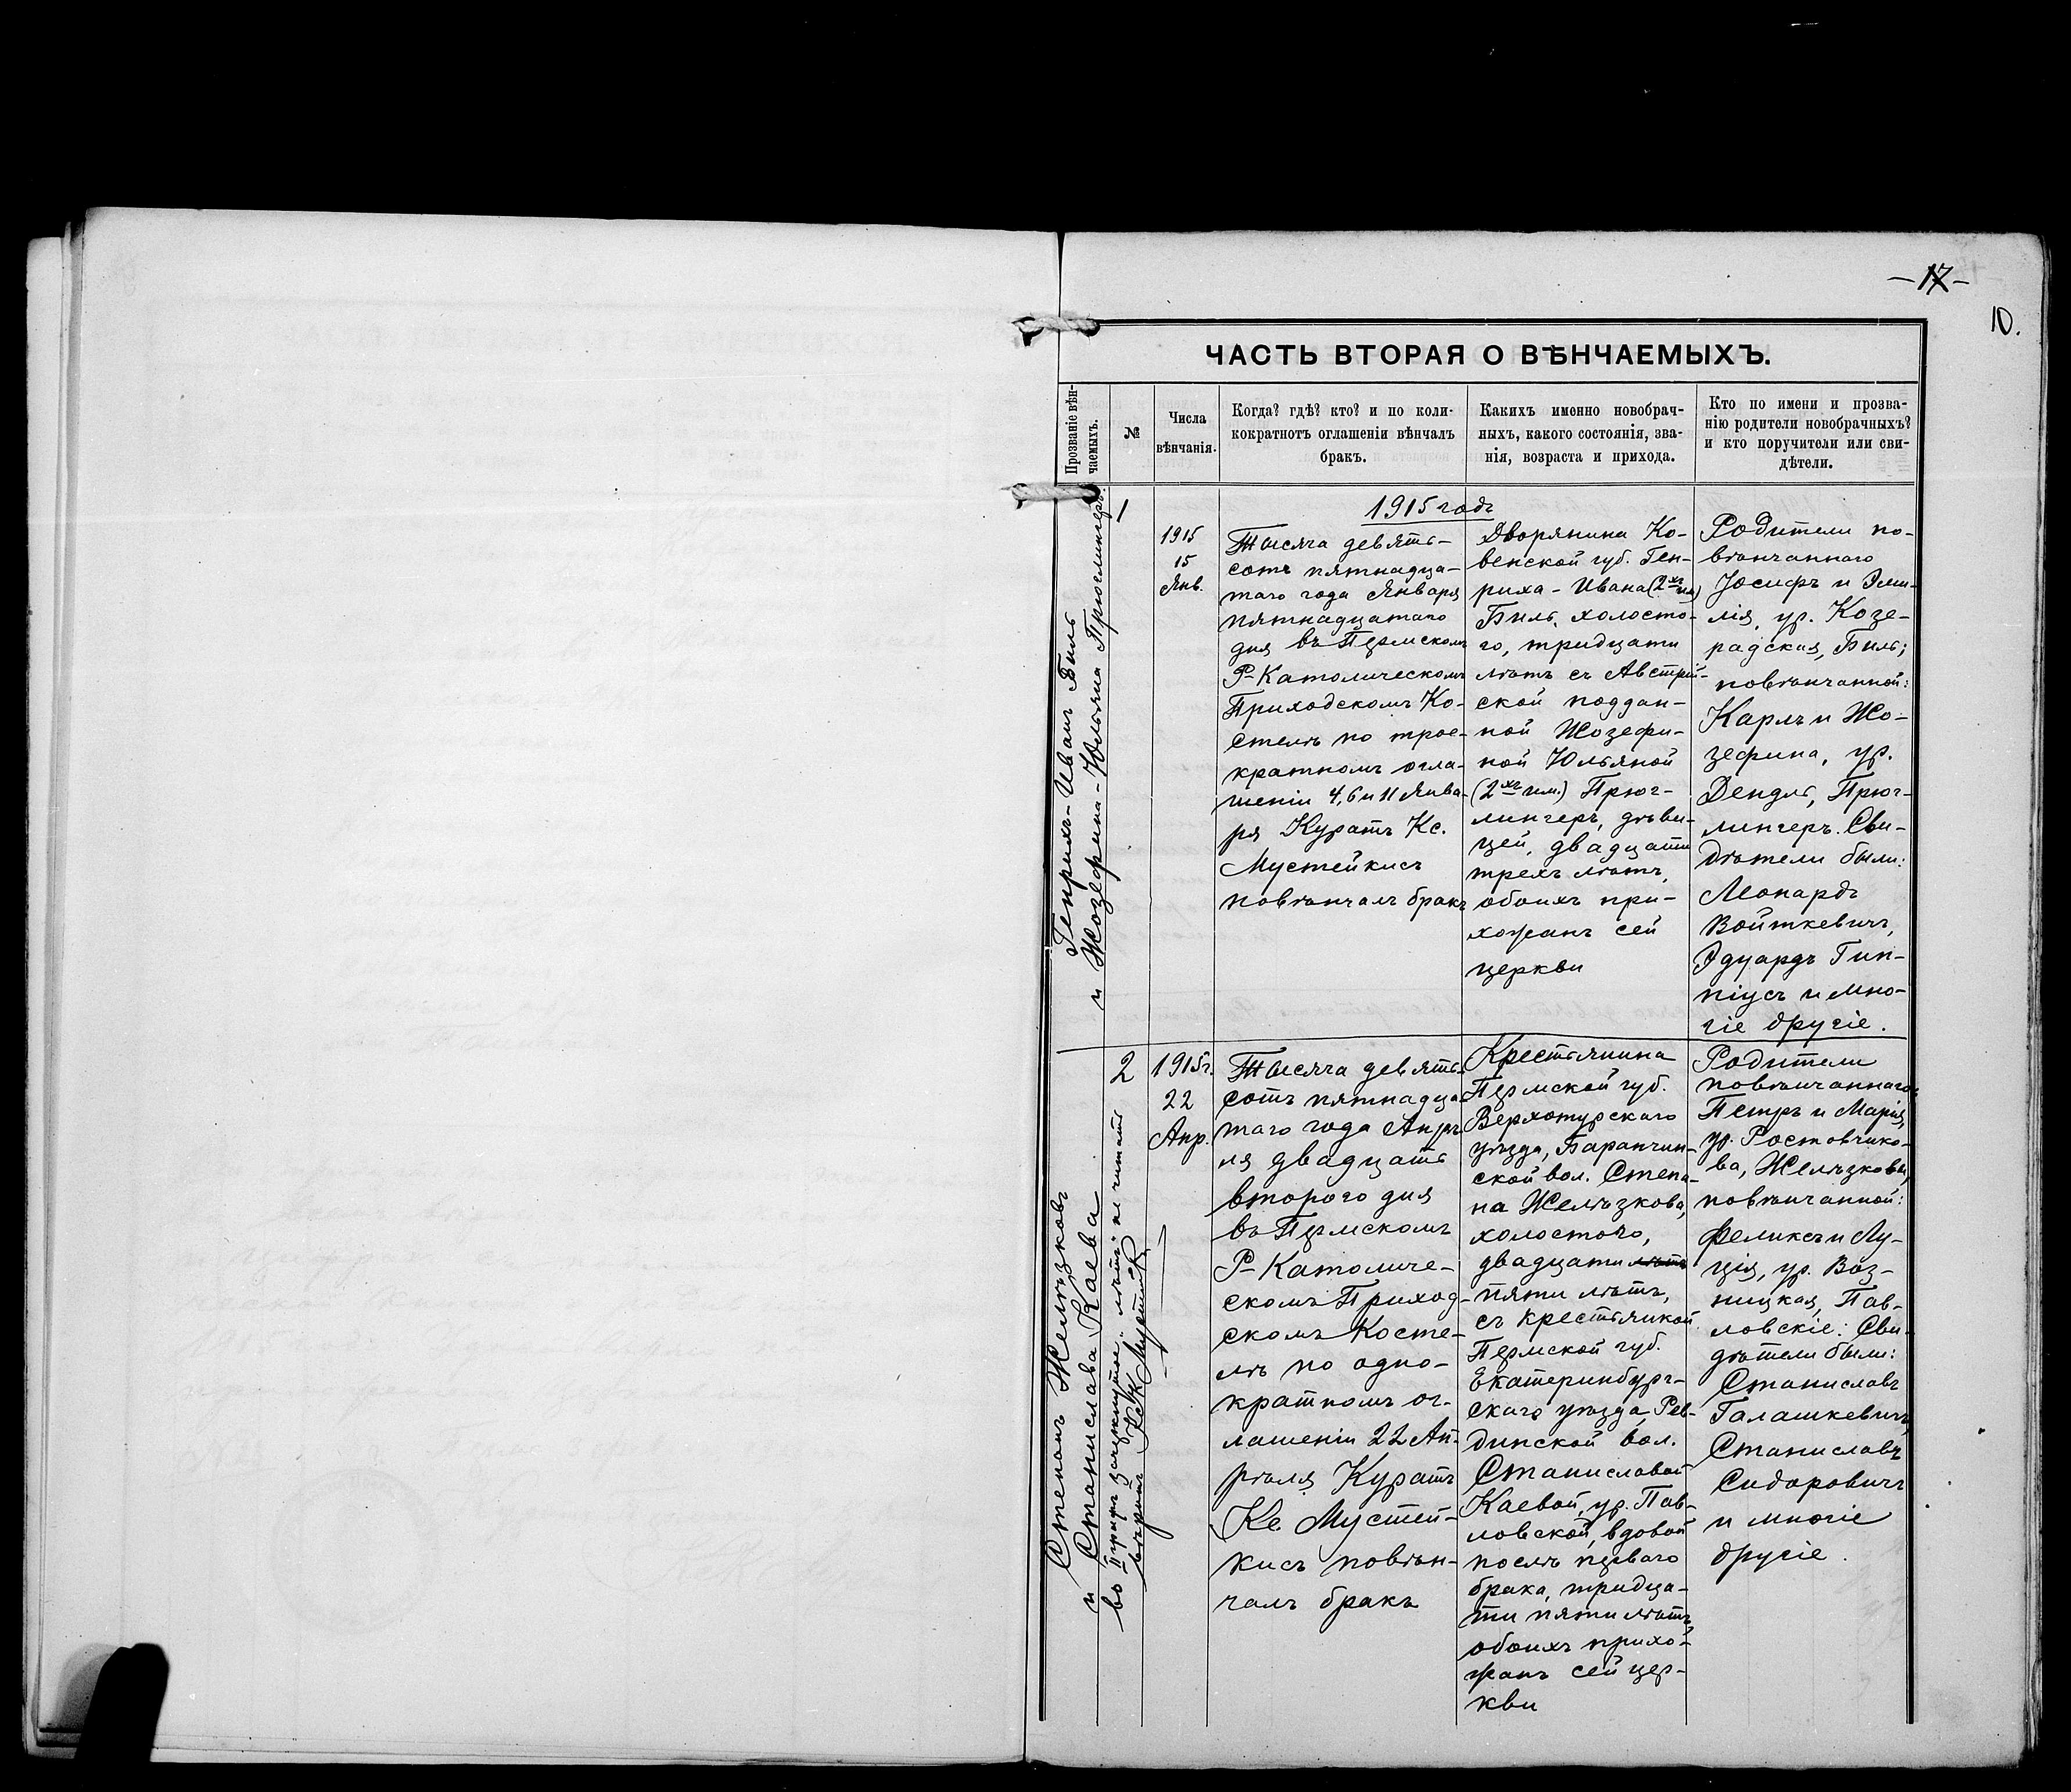 —17—
10.
ЧАСТЬ ВТОРАЯ О ВѢНЧАЕМЫХЪ.
Прозваніе вѣн-
чаемыхъ.
№
Числа
вѣнчанія.
Когда? гдѣ? кто? и по коли-
кократнотъ оглашеніи вѣнчалъ
бракъ.
Какихъ именно новобрач-
ныхъ, какого состоянія, зва-
нія, возраста и прихода.
Кто по имени и прозва-
нію родители новобрачныхъ?
и кто поручители или сви-
дѣтели.
1915 годъ
Генрихъ-Иванъ Биль
и Жозефина-Юльяна Прюглингеръ.
1
1915
15
Янв.
Тысяча девять-
сотъ пятнадца-
таго года Января
пятнадцатаго
дня въ Пермскомъ
Р-Католическомъ
Приходскомъ Ко-
стелѣ по трое-
кратномъ огла-
шеніи 4, 6 и 11 Янва-
ря Куратъ Кс.
Мустейкисъ
повѣнчалъ бракъ
Дворянина Ко-
венской губ. Ген-
риха-Ивана (2хъ им)
Биль, холосто-
го, тридцати
лѣтъ съ Австрій-
ской поддан-
ной Жозефи-
ной Юльяной
(2хъ им.) Прюг-
лингеръ, дѣви-
цей, двадцати
трехъ лѣтъ,
обоихъ при-
хожанъ сей
церкви
Родители по-
вѣнчаннаго
Іосифъ и Эми-
лія, ур. Козе-
радская, Биль;
повѣнчанной:
Карлъ и Жо-
зефина, ур.
Дендль, Прюг-
лингеръ. Сви-
дѣтели были:
Леонардъ
Войткевичъ,
Эдуардъ Гип-
піусъ и мно-
гіе другіе.
Степанъ Желѣзковъ
и Станислава Каева
во II графѣ зачеркнутое „лѣтъ“ не читать
вѣрить Кс К Мустейк
2
1915г.
22
Апр.
Тысяча девять-
сотъ пятнадца-
таго года Апрѣ-
ля двадцать
второго дня
въ Пермскомъ
Р-Католиче-
скомъ Приход-
скомъ Косте-
лѣ по одно-
кратномъ ог-
лашеніи 22 Ап-
рѣля Куратъ
Кс. Мустей-
кисъ повѣн-
чалъ бракъ
Крестьянина
Пермской губ.
Верхотурскаго
уѣзда, Баранчин-
ской вол. Степа-
на Желѣзкова,
холостого,
двадцати лѣтъ
пяти лѣтъ,
съ крестьянкой
Пермской губ.
Екатеринбург-
скаго уѣзда, Рев-
динской вол.
Станиславой
Каевой, ур. Пав-
ловской, вдовой
послѣ перваго
брака, тридца-
ти пяти лѣтъ,
обоихъ прихо-
жанъ сей цер-
кви
Родители
повѣнчаннаго:
Петръ и Марія,
ур. Ростовчико-
ва, Желѣзковы,
повѣнчанной:
Феликсъ и Лу-
ція, ур. Воз-
ницкая, Пав-
ловскіе: Сви-
дѣтели были:
Станиславъ
Галашкевичъ,
Станиславъ
Сидоровичъ
и многіе
другіе.